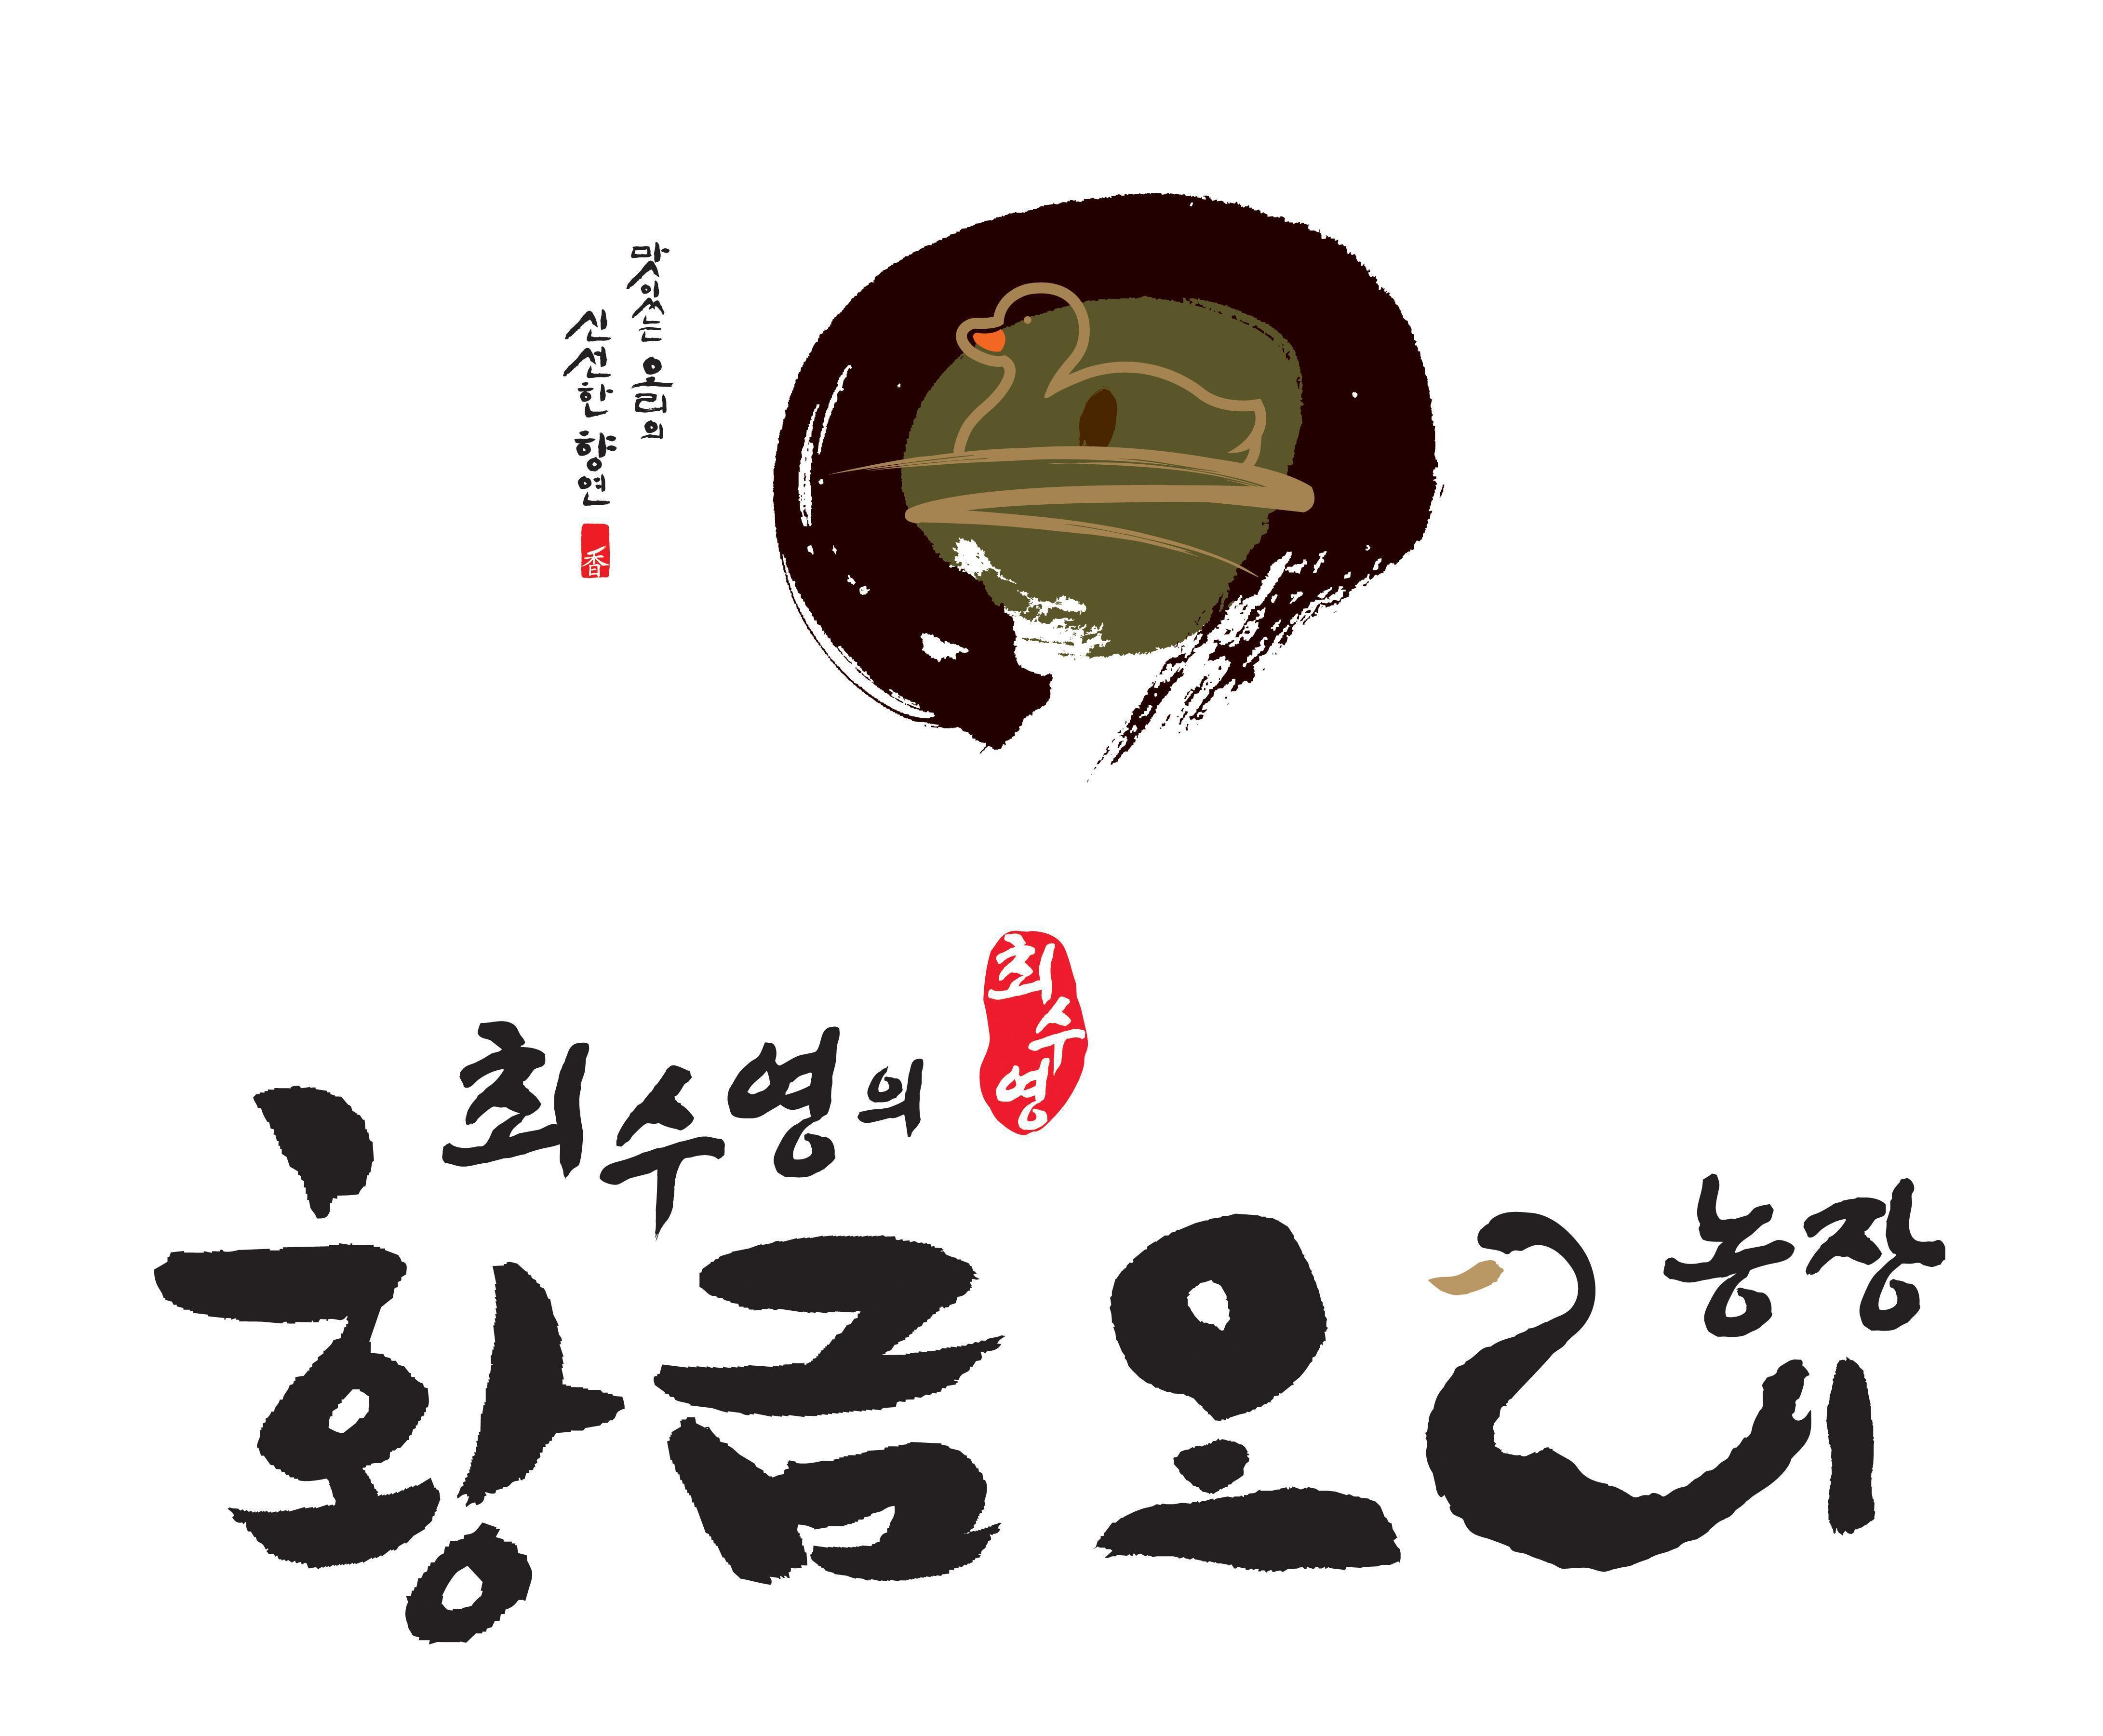 맛있는 울림의
신선한 향연
香
최수영의
최수영
황금오리
농장